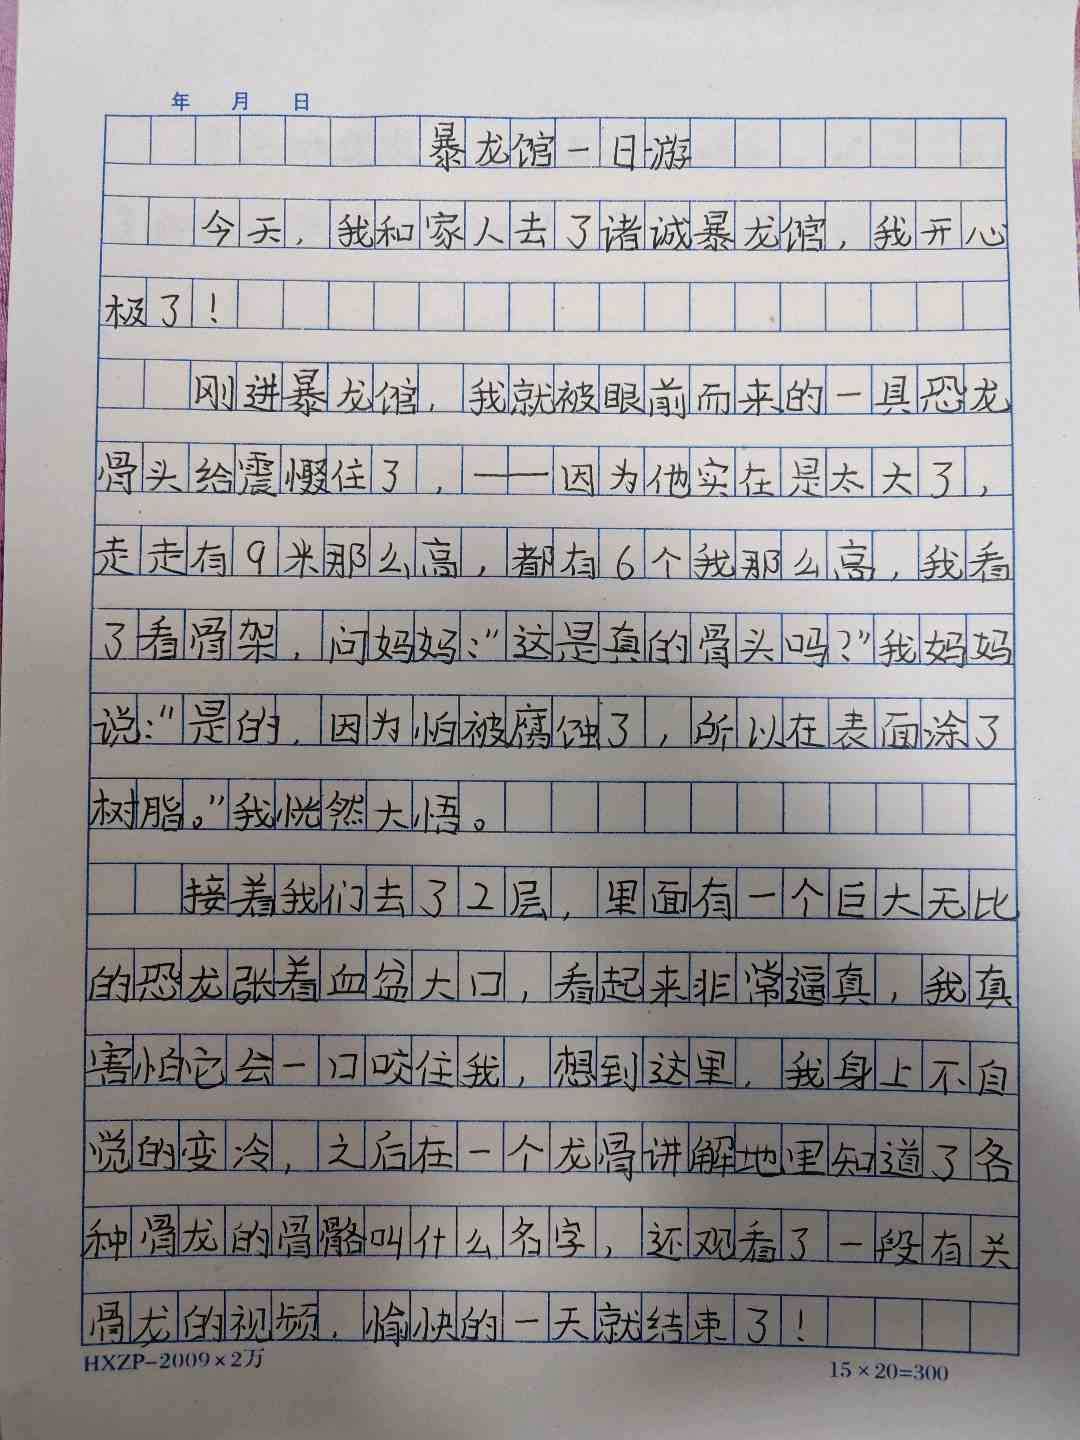 年 月 日
暴龙馆一日游
今天，我和家人去了诸诚暴龙馆，我开心
极了！
刚进暴龙馆，我就被眼前而来的一具恐龙
骨头给震慑住了，——因为他实在是太大了，
走走有9米那么高，都有6个我那么高，我看
了看骨架，问妈妈："这是真的骨头吗？"我妈妈
说："是的，因为怕被腐蚀了，所以在表面涂了
树脂。"我恍然大悟。
接着我们去了2层，里面有一个巨大无比
的恐龙张着血盆大口，看起来非常逼真，我真
害怕它会一口咬住我，想到这里，我身上不自
觉的变冷，之后在一个龙骨讲解地里知道了各
种骨龙的骨骼叫什么名字，还观看了一段有关
骨龙的视频，愉快的一天就结束了！
HXZP-2009×2万
15×20=300